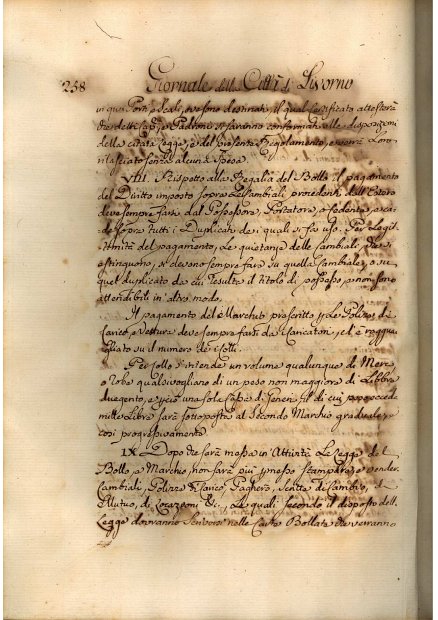 258 Giornale Città Livorno
in que Porti, e Scali, ove sono destinati, il qual certificato attesterà
che detti Cap.i e Padroni si saranno conformati alle disposizioni
della citata Legge, e del presente Regolamento, e verrà Loro
rilasciato senza alcuna spesa.
VIII. Rispetto alla Regalìa del Bollo il pagamento
del Diritto imposto sopra le Cambiali procedenti dall'Estero
deve sempre farsi dal Possessore, Portatore, o
sopra tutti i Duplicati de quali si fa uso. Per
del pagamento, Le quietanze delle Cambiali, che si
estinguono, si devono sempre fare su quella Cambiale, o su
quel duplicato da cui resulta il titolo di possesso, e non sono
attendibili in altro modo.
Il pagamento del Marchio prescritto p le Polizze di
Carico, e Vetture deve sempre farsi da Caricatori, ed è raggua
gliato su il numero de Colli.
Per Collo s'intende un volume qualunque di Merci
o Robe qualsivogliano di un peso non maggiore di Libbre
duegento, e p una sola Cassa di Generi il di cui peso eccede
mille Libre sarà sottoposta al Secondo Marchio graduale, e
così progressivamente
IX. Dopo che sarà messa in Attività La Legge del
Bollo, o Marchio, non sarà più p messo stampare, e vender
Cambiali, Polizze di Carico, Pagherò, di Cambio, di
Mutuo, di Locazioni &c, Le quali secondo il disposto della
Legge dovranno scriversi nelle Carte Bollate che verranno